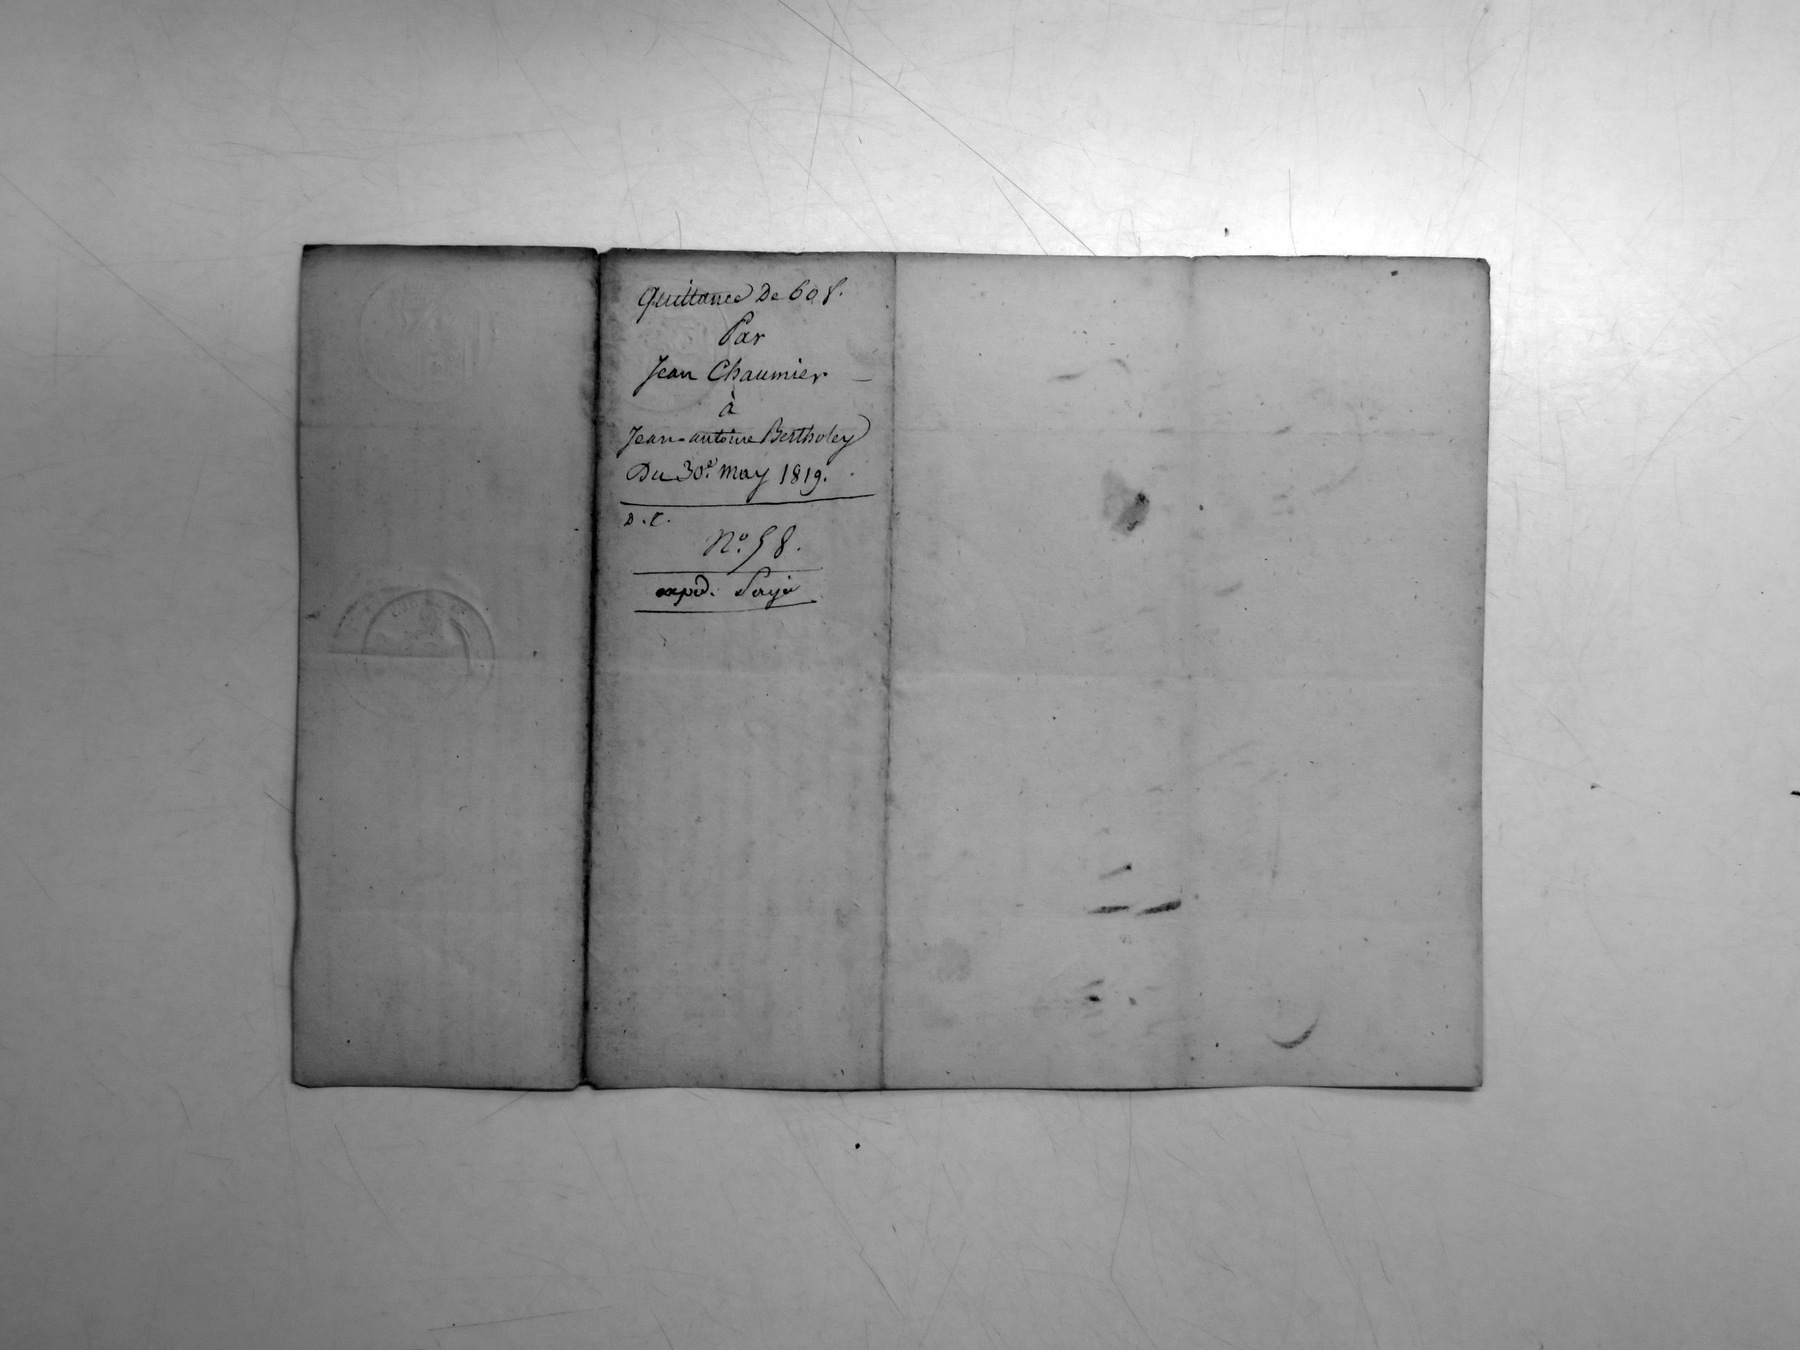 Quittance De 60 f.
Par
Jean Chaumier
à
Jean-antoine Bertholey
Du 30.e may 1819.
D.C.
N.o 58.
expéd. Payé